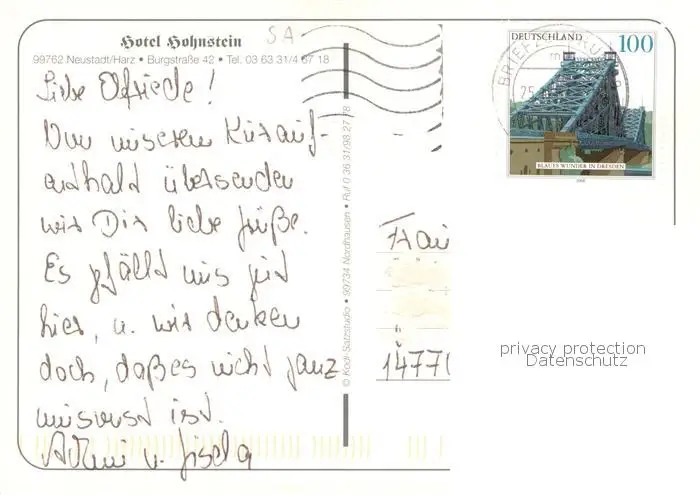 Hotel Hohnstein
SA
99762 Neustadt/Harz • Burgstraße 42 • Tel. 03 63 31/4 67 18
Liebe Elfriede!
Von unserem Kurauf-
enthalt übersenden
wir Dir liebe Grüße.
Es gefällt uns gut
hier, u. wir denken
doch, daß es nicht ganz
umsonst ist.
u. Gisela
© Kodi-Satzstudio • 99734 Nordhausen • Ruf 0 36 31/98 27 78
DEUTSCHLAND 100
BLAUES WUNDER IN DRESDEN
2000
BRIEFZENTRUM
25
Frau
1477
privacy protection
Datenschutz